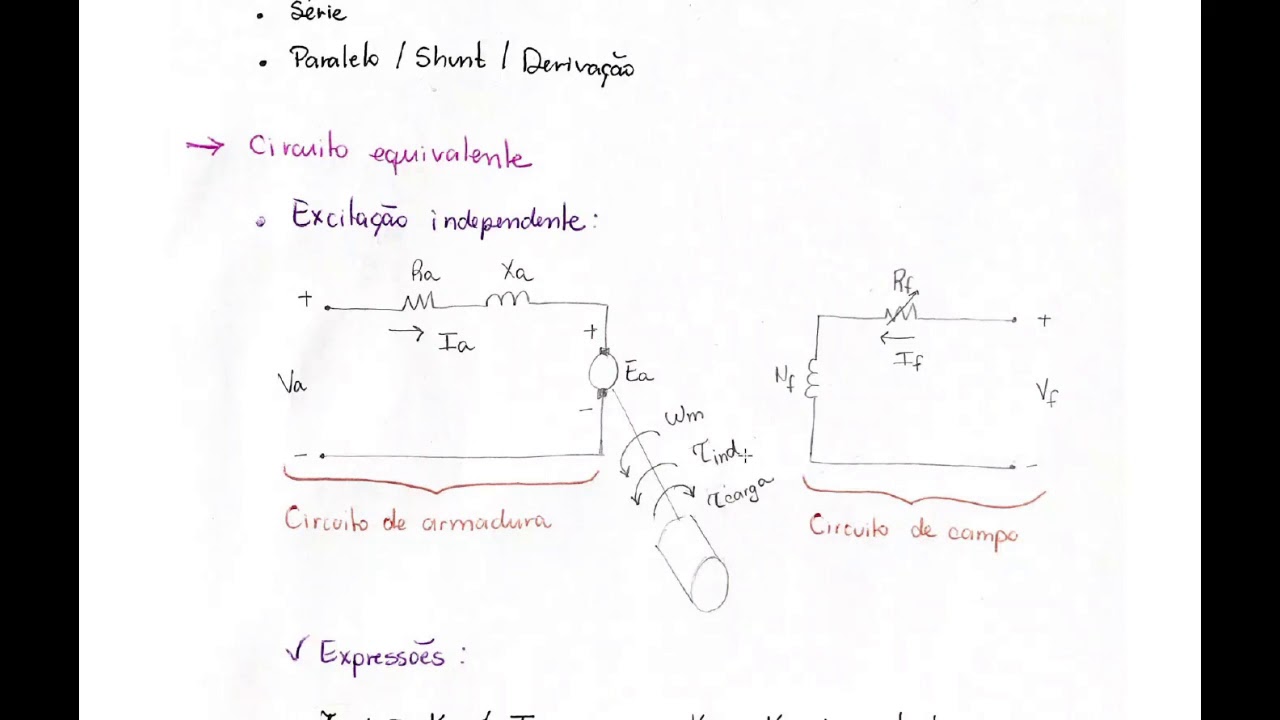 • Série
• Paralelo / Shunt / Derivação
→ Circuito equivalente
• Excitação independente:
Ra Xa
+
Ia
+
Va
Ea
-
-
ωm
τind
τcarga
Circuito de armadura
Rf
+
If
Nf
Vf
-
Circuito de campo
✓ Expressões: